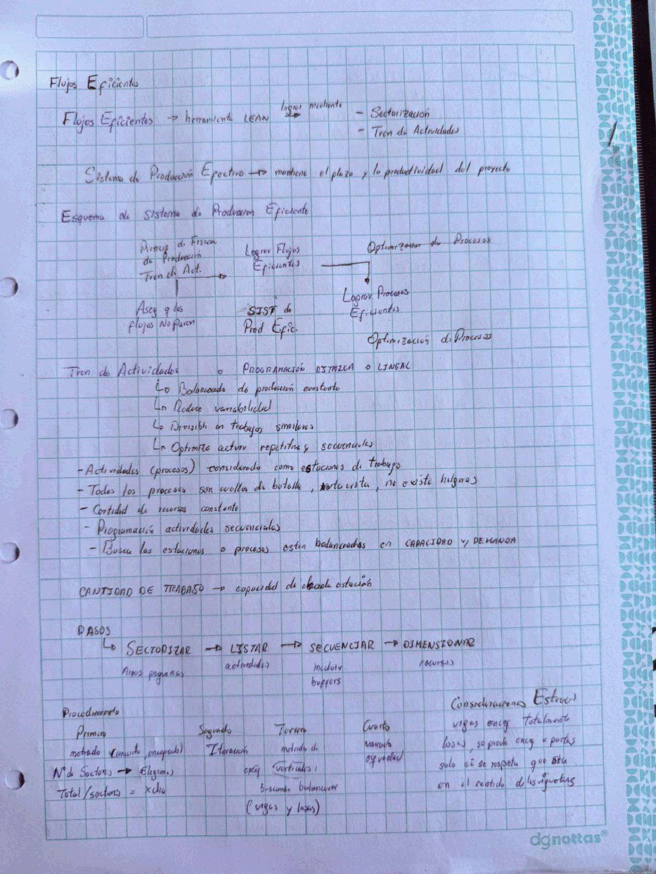 Flujos Eficientes
Flujos Eficientes → herramienta LEAN lograr mediante → - Sectorización
- Tren de Actividades
Sistema de Producción Efectivo → mantiene el plazo y la productividad del proyecto
Esquema de Sistema de Produccion Eficiente
de Producción
Tren de Act.
Lograr Flujos
Eficientes
Optimizacion de Procesos
Aseg q los
flujos No Paren
SIST de
Prod Efic.
Lograr Procesos
Eficientes
Optimización di Procesos
Tren de Actividades o PROGRAMACIÓN RITMICA o LINEAL
↳ Balanceado de producción constante
↳ Reduce variabilidad
↳ Divisible en trabajos similares
↳ Optimiza activ repetitivas y secuenciales
- Actividades (procesos) considerado como estaciones de trabajo
- Todos los procesos son cuellos de botella, ruta crítica, no existe holguras
- Cantidad de recursos constante
- Programación actividades secuenciales
- Busca las estaciones o procesos esten balanceadas en CAPACIDAD y DEMANDA
CANTIDAD DE TRABAJO → capacidad de cada estación
PASOS
↳ SECTORIZAR → LISTAR → SECUENCIAR → DIMENSIONAR
Areas pequeñas actividades incluir recursos
buffers
Procedimiento
Primero
metrado
N° de Sectores → Elegimos
Total/sectores = x día
Segundo
Iteración
Tercero
metrado de
encof verticales,
buscando balancear
(vigas y losas)
Cuarto
Consideraciones Estruc
vigas encof totalmente
losas, se puede encof x partes
solo si se respeta que sea
en el sentido de las viguetas
dgnottas